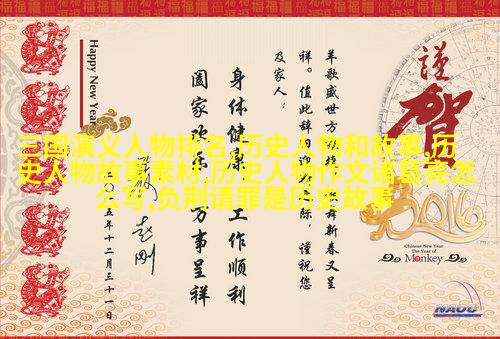 三国演义人物排名,历史人物和故事,历
史人物故事素材,历史人物作文诸葛亮怎
么写,负荆请罪是历史故事
謹
賀
2016
Chinese New Year
The Year of
Monkey
羊歌盛世方 舞新春又呈
祥。值此辞旧迎 际，谨祝您
及家人：
身体健康 工作顺利
阖家欢乐 万事呈祥
五年十二月三十一日
Happy New Year
NAOC